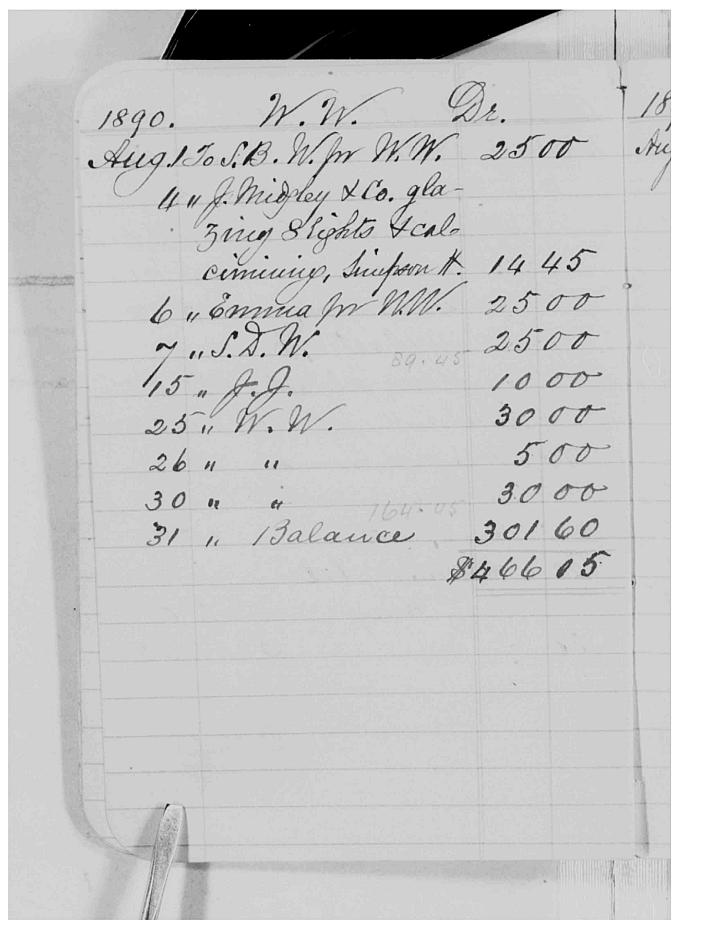 1890. W. W. Dr. 18
Aug. 1 To S. B. W. pr W. W. 25 00 Aug
4 " J. Midgley & Co. gla-
zing 8 lights & cal-
cimining, Simpson H. 14 45
6 " Emma pr W. W. 25 00
7 " S. D. W. 25 00
89.45
15 " J. J. 10 00
25 " W. W. 30 00
26 " " 5 00
30 " " 30 00
164.45
31 " Balance 301 60
$466 05